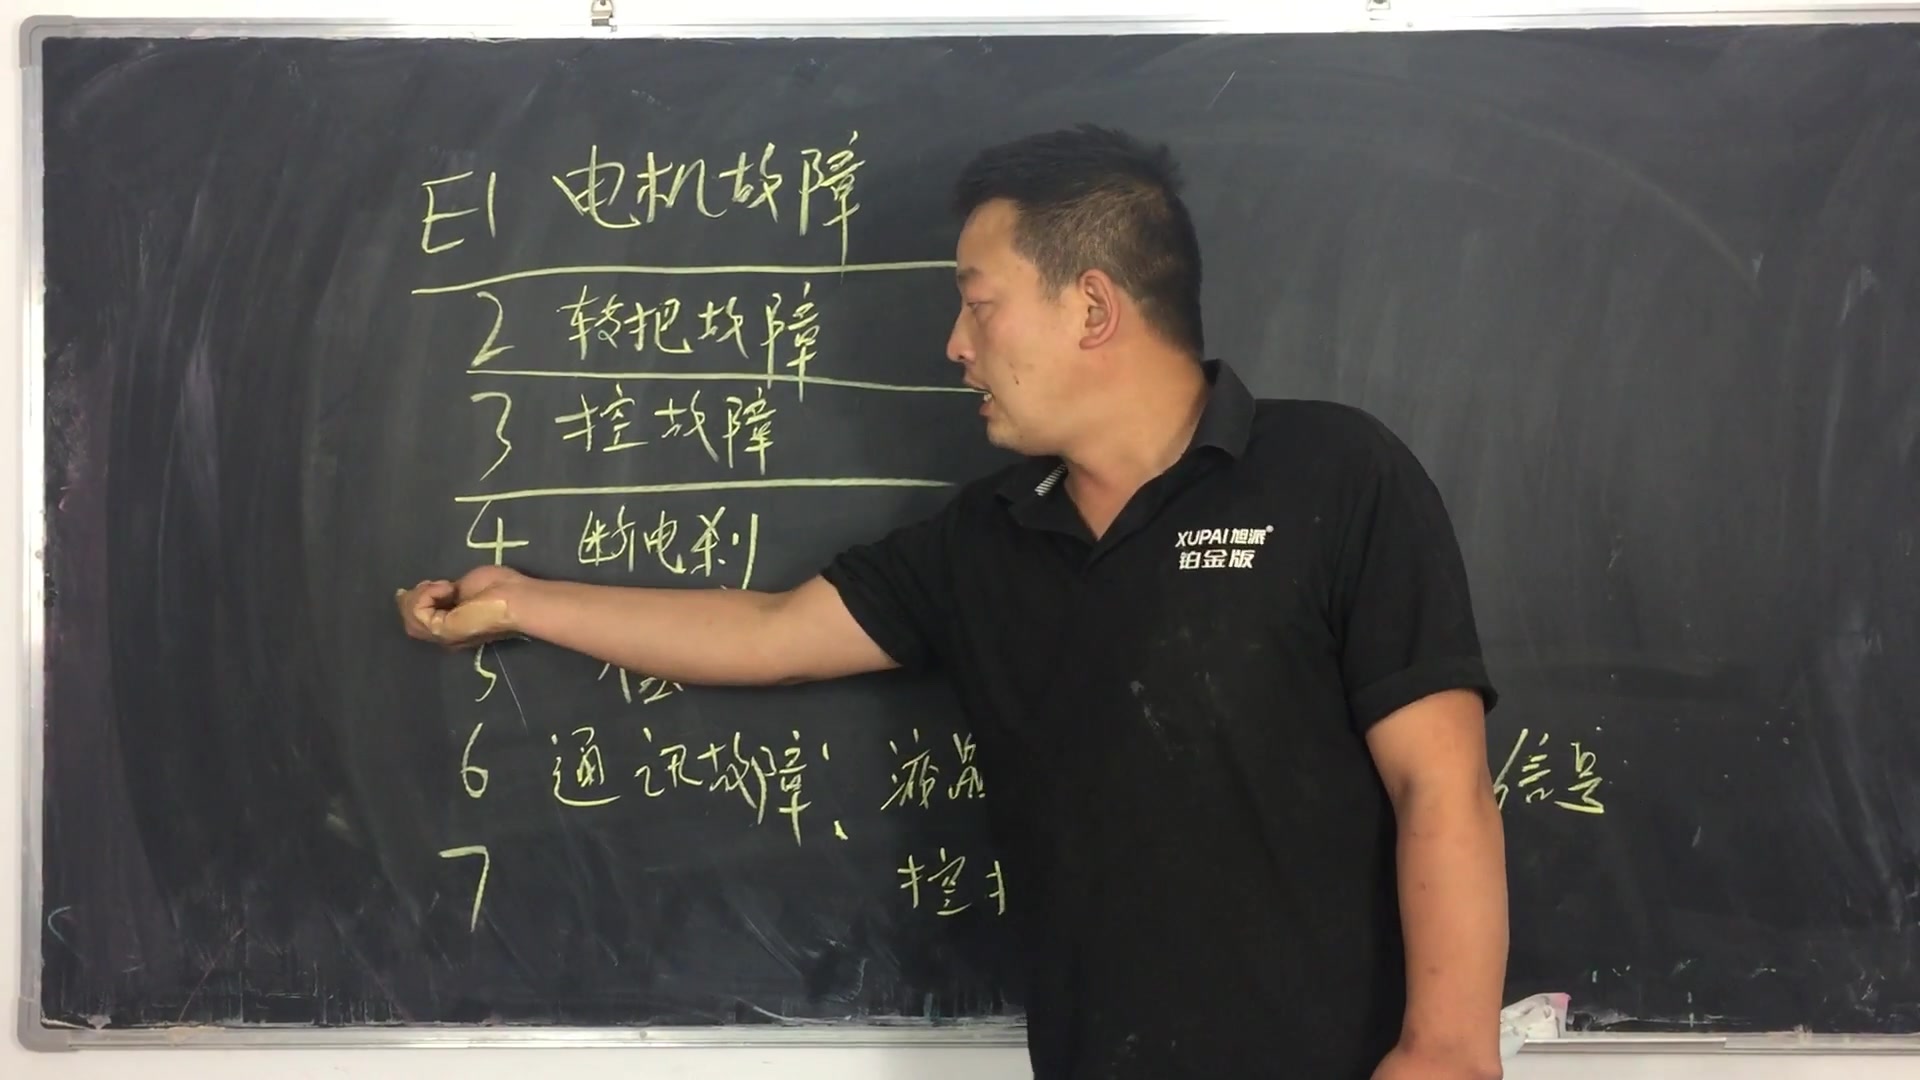 E1 电机故障
2 转把故障
3 控故障
4 断电刹
5
6 通讯故障: 液晶 信号
7 控
XUPAI 旭派®
铂金版